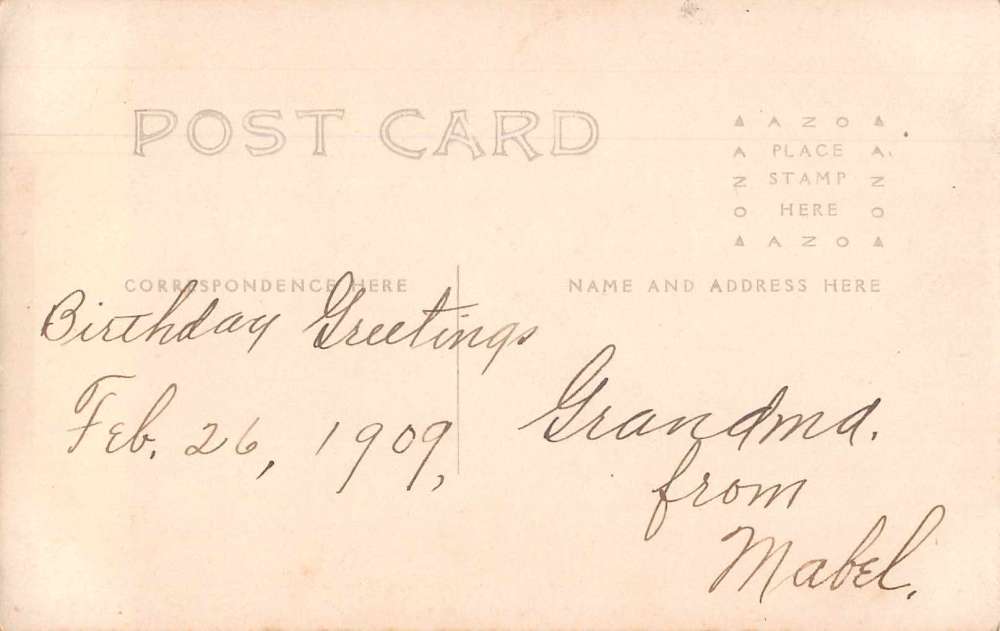 POST CARD
▲ A Z O ▲
A PLACE A
Z STAMP Z
O HERE O
▲ A Z O ▲
CORRESPONDENCE HERE
NAME AND ADDRESS HERE
Birthday Greetings
Feb. 26, 1909,
Grandma.
from
Mabel.